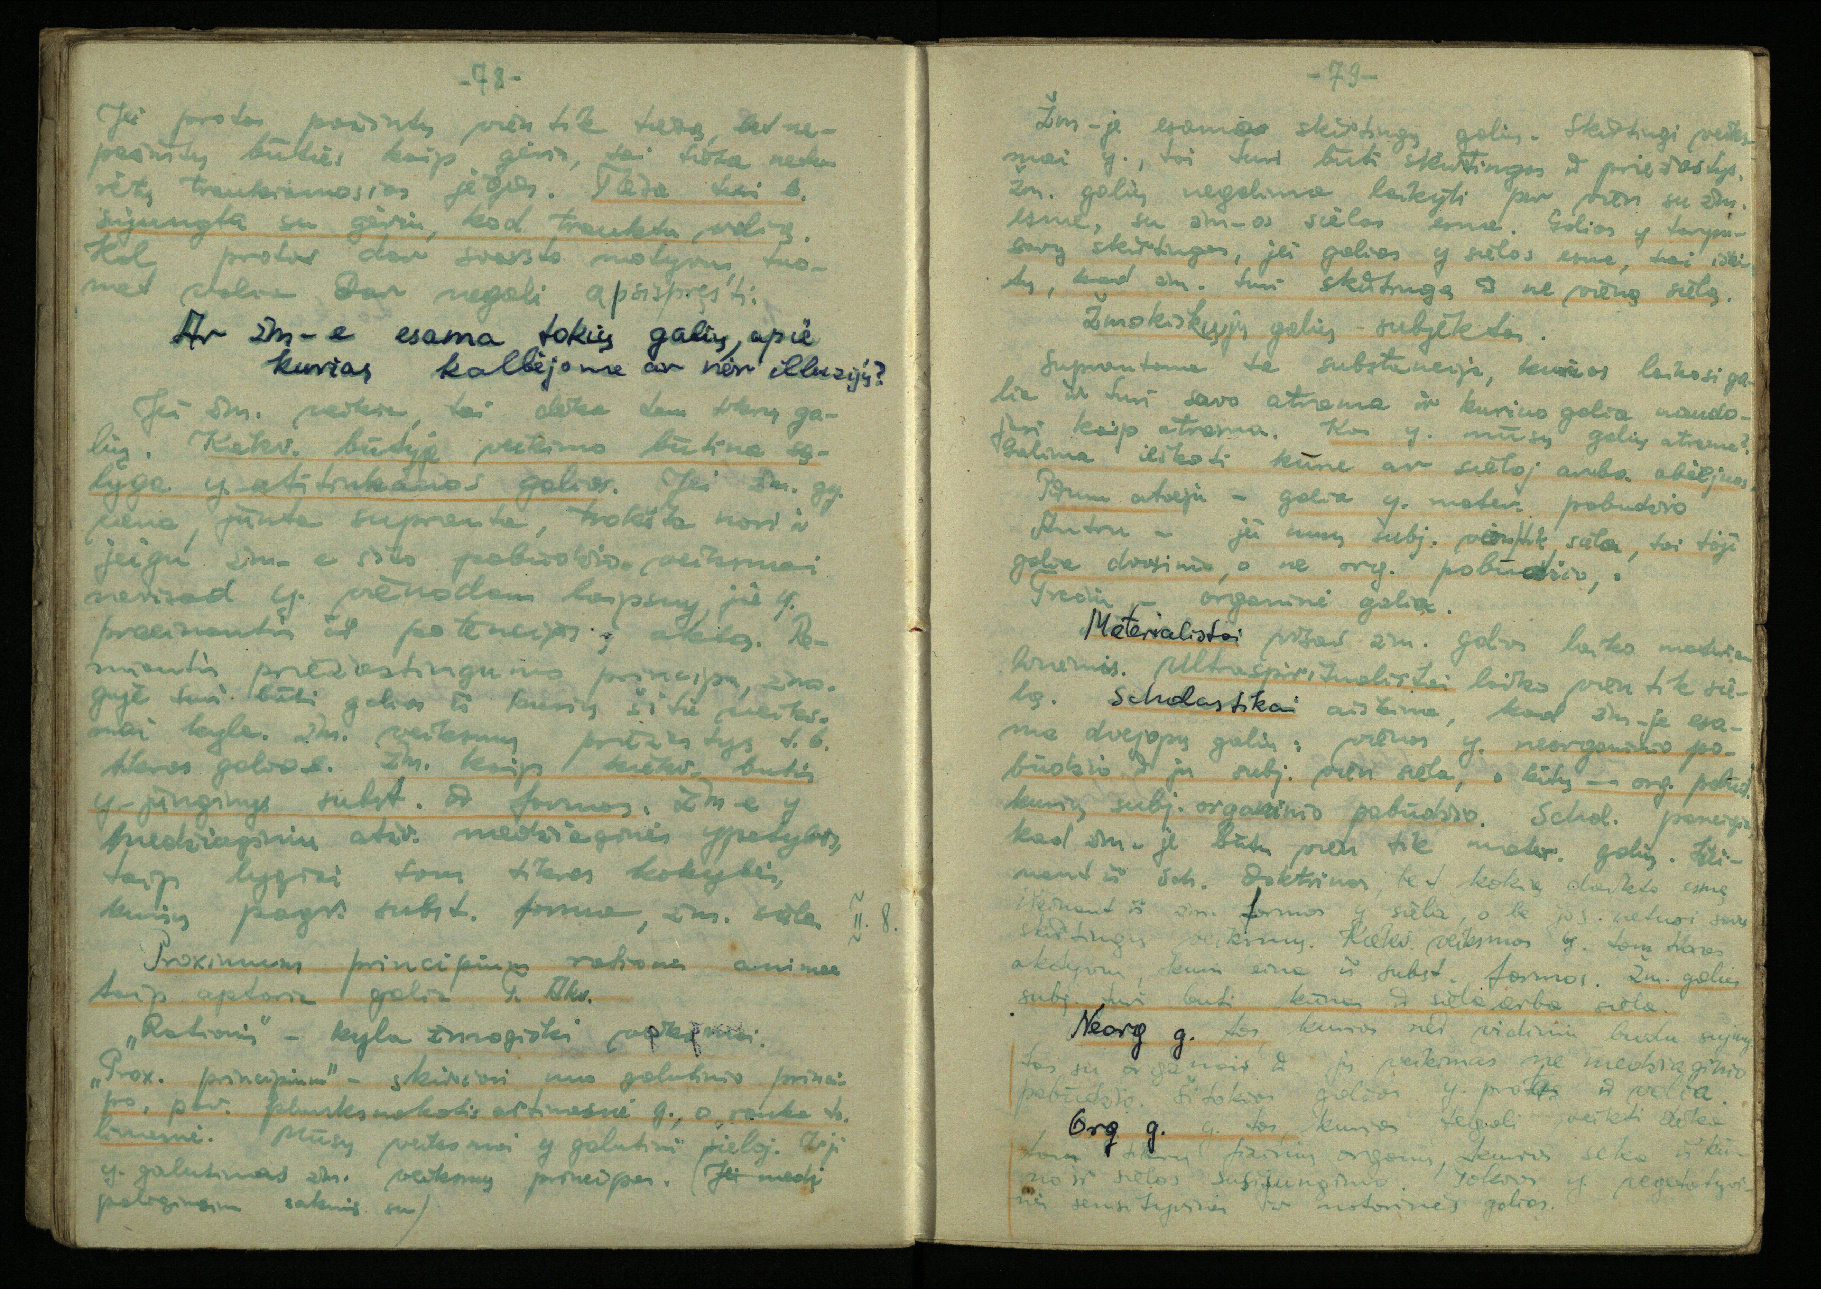 -78-
Jei protas pažintų vien tik tiesą, bet ne-
pažintų būties kaip gėrio, tai tiesa netu-
rėtų traukiamosios jėgos. Tiesa turi b.
sujungta su gėriu, kad trauktų valią.
Kol protas dar svarsto motyvus, tuo-
met valia dar negali apsispręsti.
Ar žm-e esama tokių galių, apie
kurias kalbėjome ar vien illuzijų?
Jei žm. veikia, tai dėka tam tikrų ga-
lių. Kiekv. būtyje veikimo būtina są-
lyga y. atitinkamos galios. Jei žm. gy-
vena, junta supranta, trokšta nori ir
jeigu žm-e šito pobūdžio veiksmai
nevisad y. vienodam laipsny, jie y.
praeinantis iš potencijos į aktą. Re-
miantis priežastingumo principu, žmo-
guje turi būti galios iš kurių šitie veiks-
mai kyla. Žm. veiksmų priežastys t. b.
tikros galios. Žm. kaip kiekv. būtis
y. junginys subst. ir formos. Žm-e y
medžiaginiu atžv. medžiaginės ypatybės,
taip lygiai tam tikros kokybės,
kurių pagr. subst. forma, žm. siela
II. 8.
Proximum principium rationis animae
taip aptaria galią T. Akv.
„Rationis" – kyla žmogiški veiksmai.
„Prox. principium" – skiriasi nuo galutinio princi-
po, pav. plunksnakotis artimesnė g., o ranka to-
limesnė. Mūsų veiksmai y galutini sieloj. Ji
y. galutinas žm. veiksmų principas. (Jei medį
palyginsim saknis su)
-79-
Žm-je esamos skirtingų galių. Skirtingi veiks-
mai y., tai turi būti skirtingos ir priežastys.
Žm. galių negalima laikyti per vien su žm.
esme, su žm-os sielos esme. Galios y tarpu-
savy skirtingos, jei galios y sielos esme, tai išei-
tų, kad žm. turi skirtingą ir ne vieną sielą.
Žmokiškųjų galių – subjektas.
Suprantama ta substancija, kurios laikosi ga-
lia ir turi savo atrama ir kuriuo galia naudo-
jasi kaip atrama. Kas y. mūsų galių atrama?
Galima ieškoti kūne ar sieloj arba abiejuos.
Pirmu atveju – galia y. mater. pobūdžio
Antru – jei mūsų subj. vien tik siela, tai toji
galia dvasinio, o ne org. pobūdžio,
Trečiu – organinė galia.
Materialistai visas žm. galias laiko materia-
linėmis. Ultraspiritualistai laiko vien tik sie-
lą. Scholastikai aiškina, kad žm-je esa-
ma dvejopų galių: vienos y. neorganinio po-
būdžio ir jų subj. vien siela, o kitų – org. pobūd.
kurių subj. organinio pobūdžio. Schol. paneigia
kad žm-je būtų vien tik mater. galių. Išei-
nant iš Sch. doktrinos, bet kokią daikto esmę
išeinant iš žm. formos y siela, o be jos neturi savo
skirtingų veiksmų. Kiekv. veiksmas y. tam tikras
aktyvum, kuris eina iš subst. formos. Žm. galių
subj. turi būti kūnas ir siela arba siela.
Neorg g. tos, kurios nei vidiniu būdu sujung-
tos su organais ir jų veikimas ne medžiaginio
pobūdžio. Šitokios galios y. protas ir valia.
Org g. g. tos, kurios tegali veikti dėka
tam tikrų fizinių organų, kurios seka iš kū-
no ir sielos susijungimo. Tokios y. vegetatyvi-
nės sensityvinės ir motorinės galios.